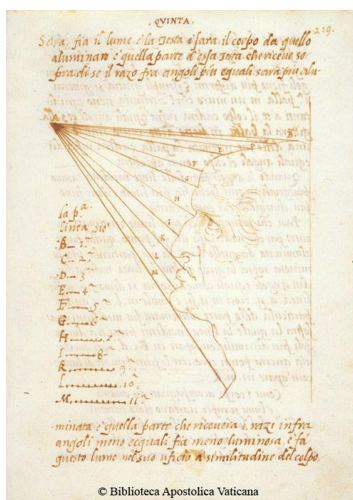 QUINTA.
219.
Sesta, fia il lume e la testa e sara il corpo da quello
aluminato e quella parte d'essa testa che riceve so
pra di se il razo fra angoli piu equali sara piu alu
la pª
tinta sie
B 1ª
C 2ª
D 3
E 4ª
F 5ª
G 6ª
H 7ª
I 8
K 9ª
L 10
M 11ª
minata e quella parte che ricevera i razi infra
angoli meno eequali fia meno luminosa e fa
questo lume nel suo ufitio a similitudine del colpo.
© Biblioteca Apostolica Vaticana